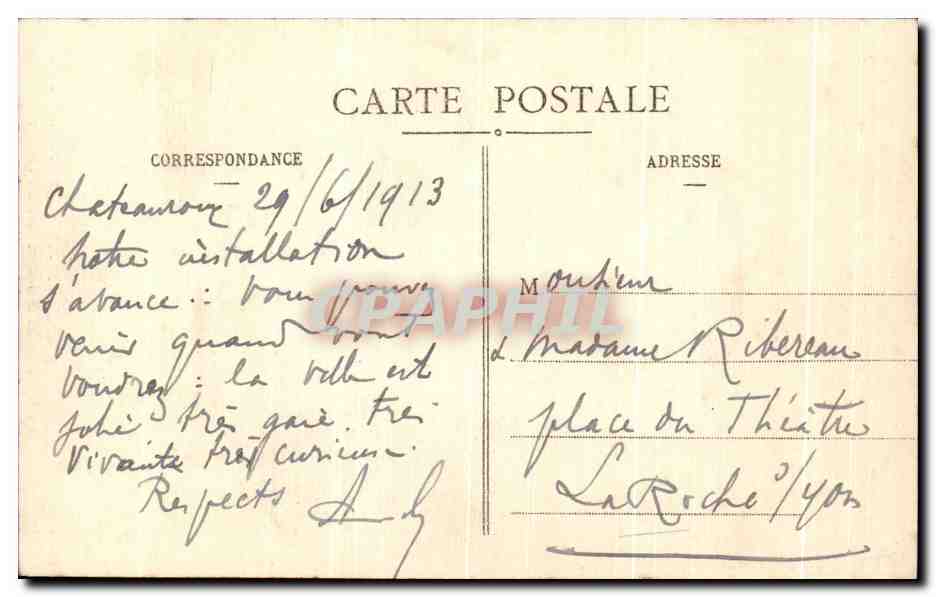 CARTE POSTALE
CORRESPONDANCE
Chateauroux 29/6/1913
Notre installation
s'avance : vous pouvez
venir quand vous
voudrez : la ville est
jolie très gaie. très
vivante très curieuse.
Respects
ADRESSE
Monsieur
& Madame Ribereau
place du Théâtre
La Roche s/yon
CPAPHIL